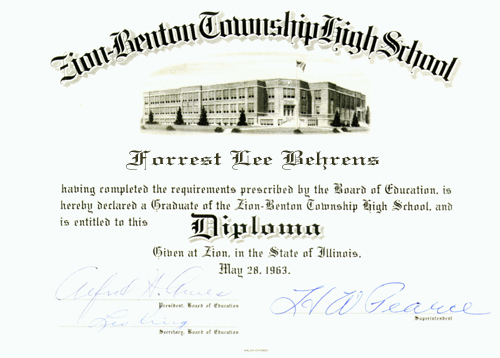 Zion-Benton Township High School
Forrest Lee Behrens
having completed the requirements prescribed by the Board of Education, is
hereby declared a Graduate of the Zion-Benton Township High School, and
is entitled to this Diploma
Given at Zion, in the State of Illinois,
May 28, 1963.
Alfred H. Ames
President, Board of Education
H W Pearce
Superintendent
Leo King
Secretary, Board of Education